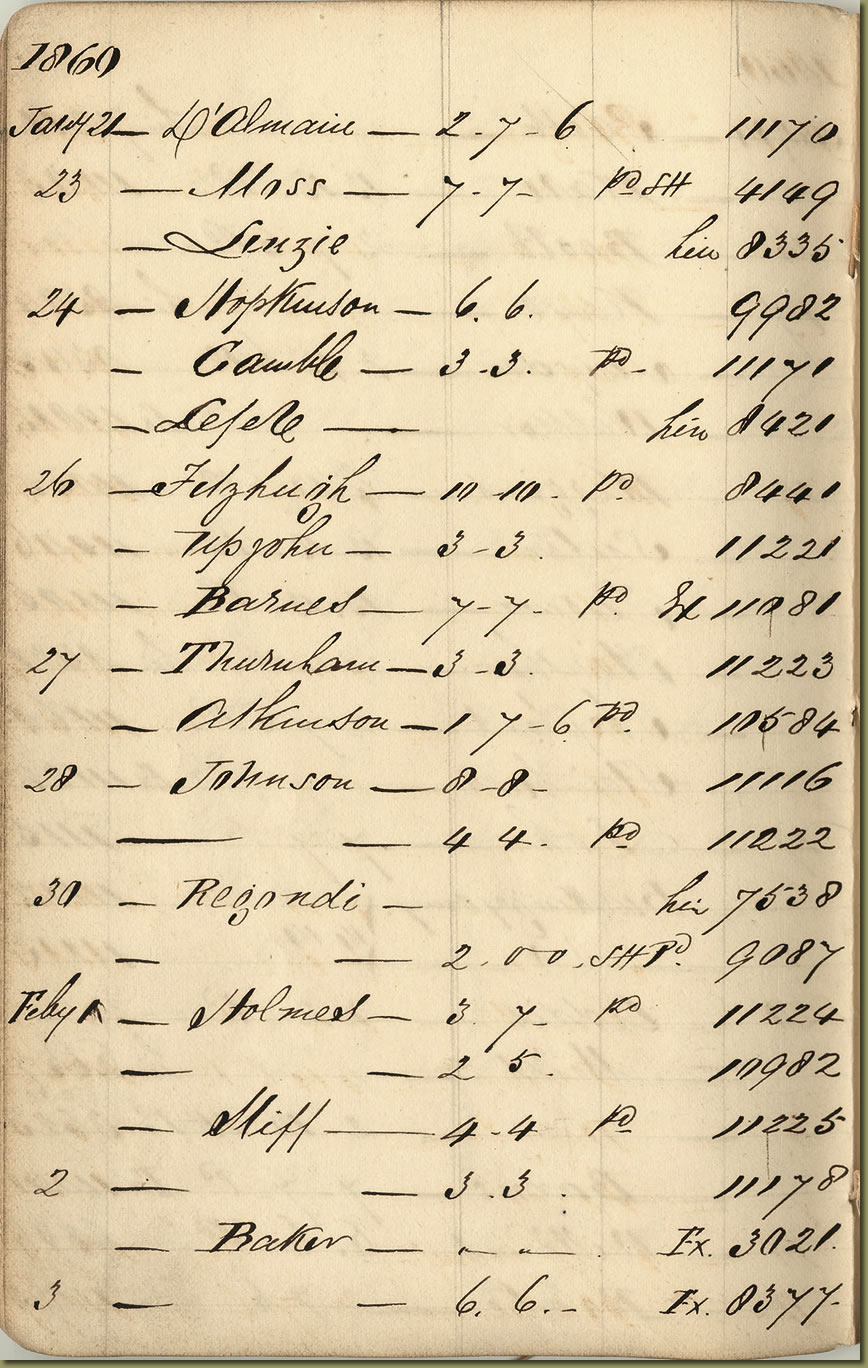 1860
Jany 21 — D'Almaine — 2 - 7 - 6 11170
23 — Moss — 7 - 7 - Pd SH 4149
— Lenzie hire 8335
24 — Hopkinson — 6. 6. 9982
— Gamble — 3 - 3. Pd - 11171
— — hire 8421
26 — Fitzhugh — 10 10. Pd 8441
— Upjohn — 3 - 3. 11221
— Barnes — 7 - 7 - Pd. Ex 11081
27 — Thurnham — 3 - 3. 11223
— Atkinson — 1 7 - 6 Pd. 10584
28 — Johnson — 8 - 8 - 11116
— — 4 4. Pd 11222
30 — Regondi — hire 7538
— — 2. 0 0. SH Pd. 9087
Feby 1 — Holmes — 3. 7 - Pd 11224
— — 2 5. 10982
— Stiff — 4 - 4 Pd 11225
2 — — 3. 3. 11178
— Baker — „ „ — . Ex. 3021.
3 — — 6. 6. - Ex. 8377 -